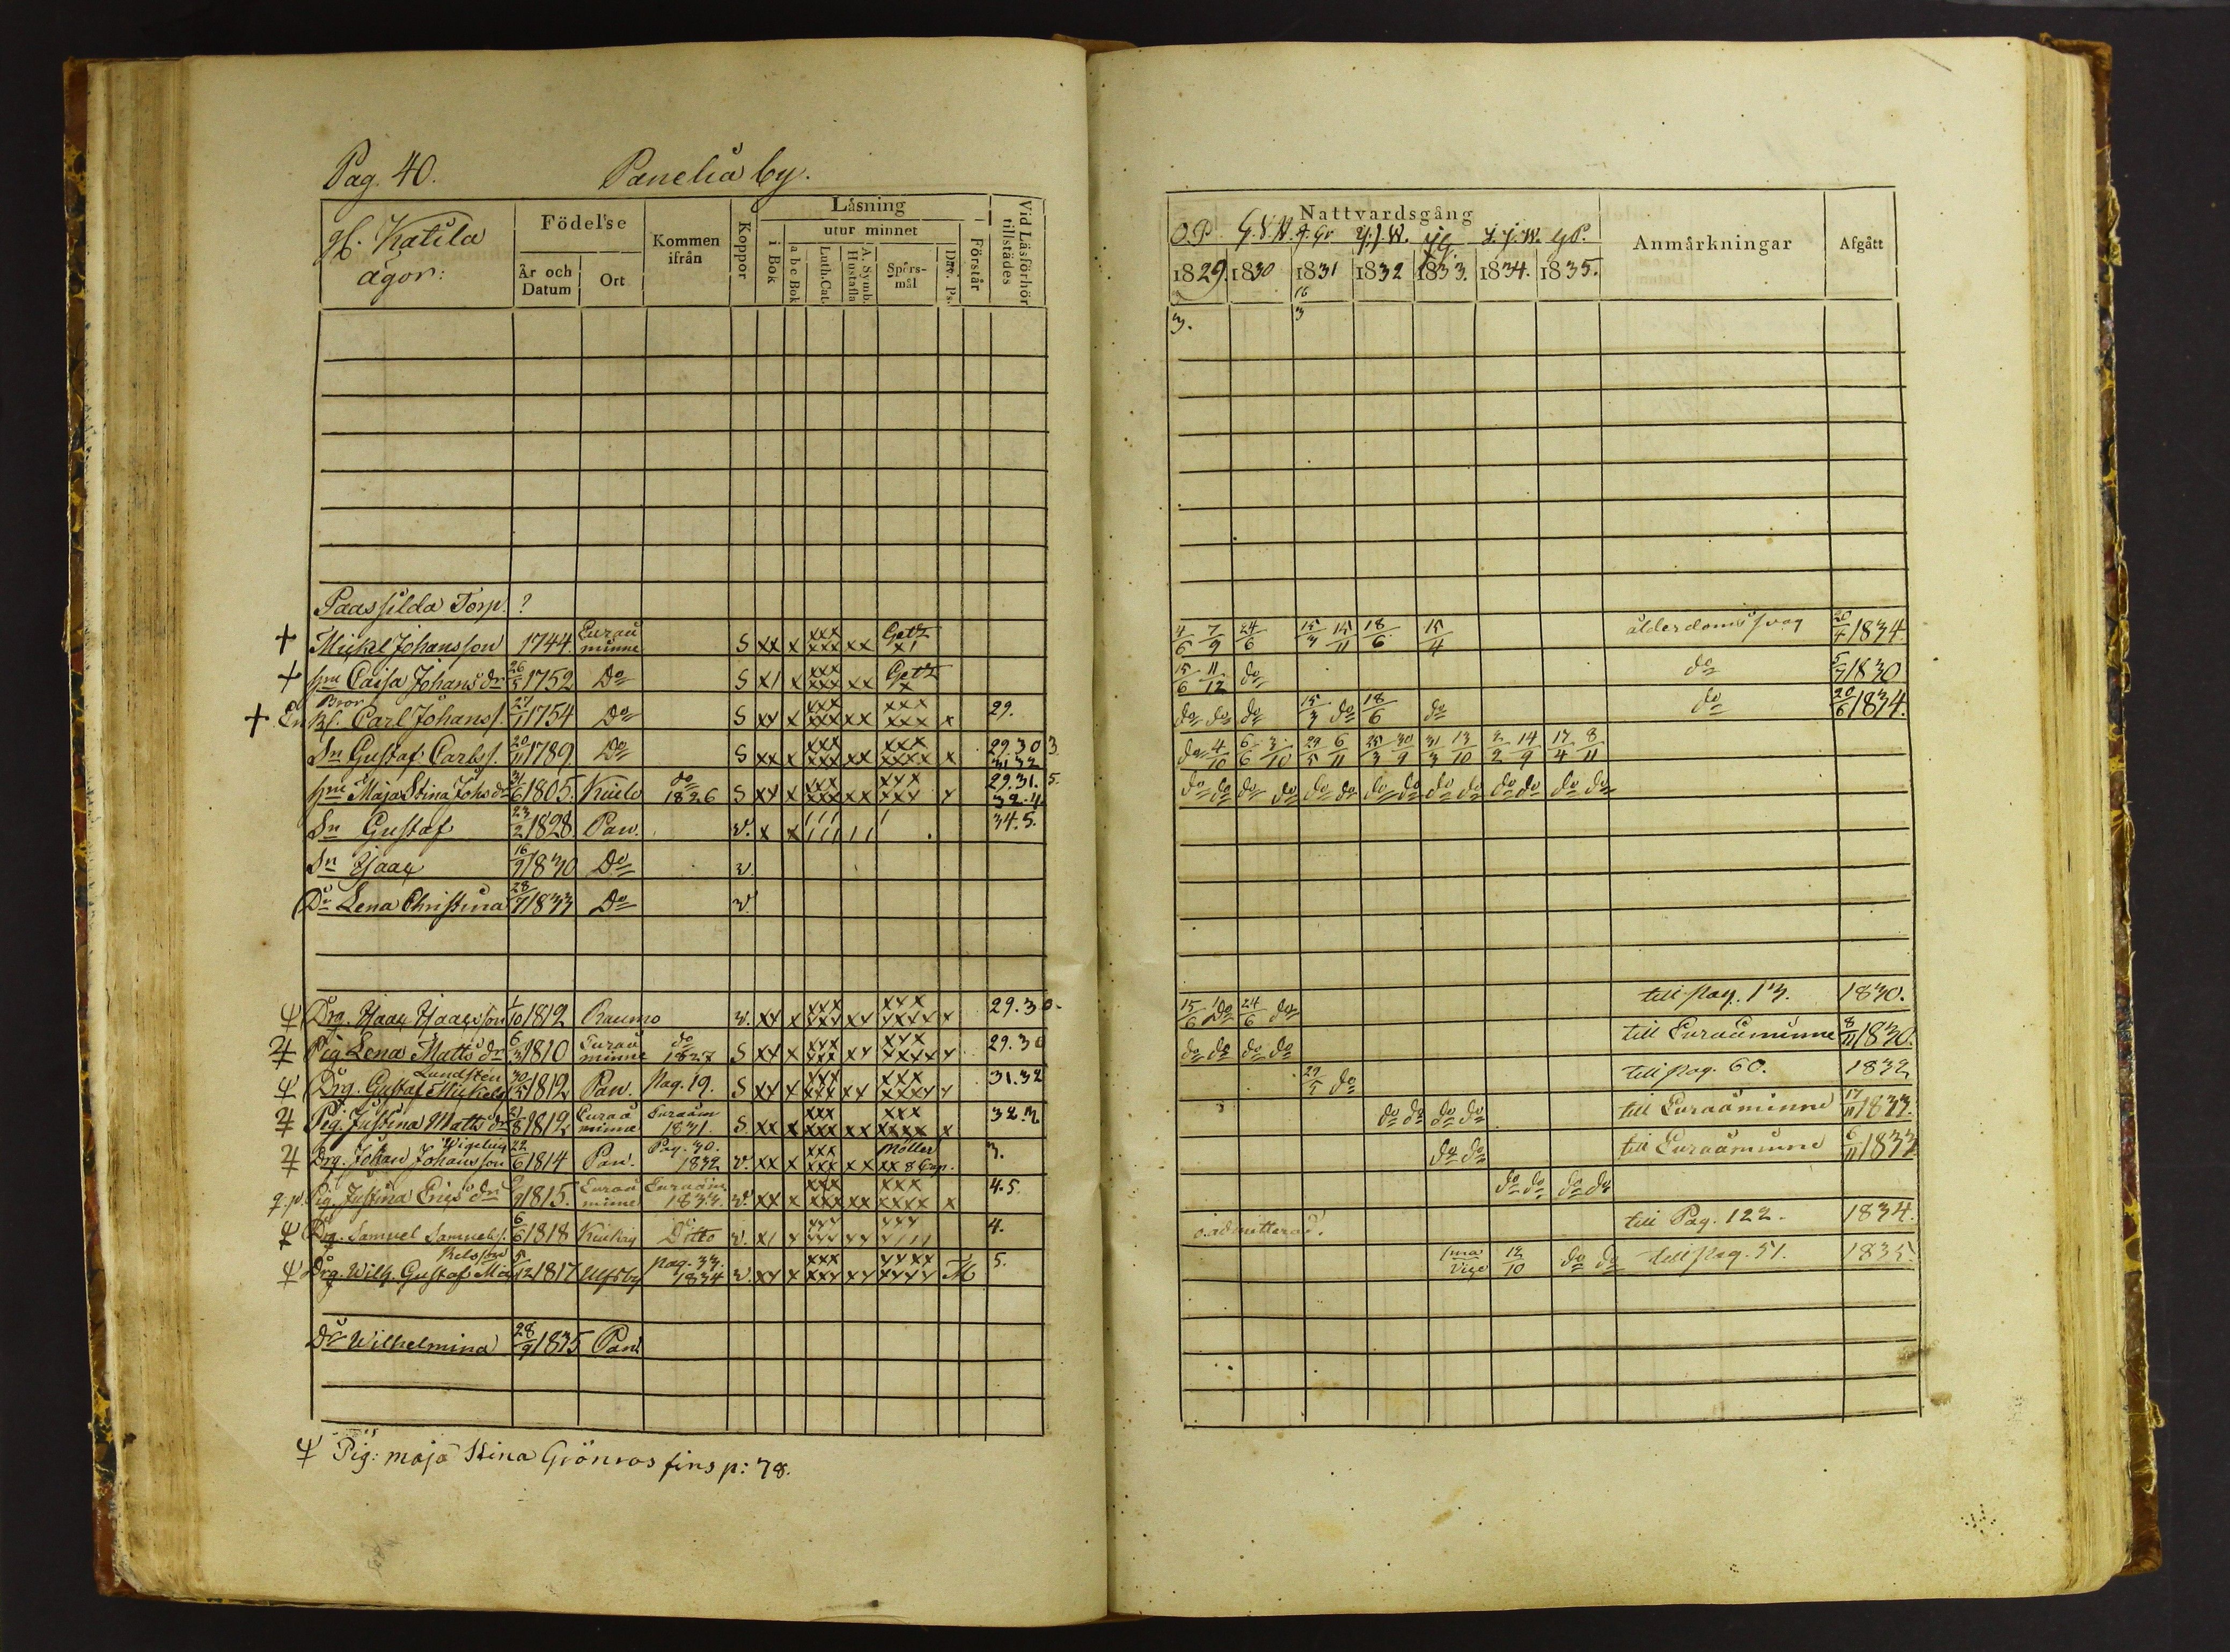 Pag. 40. Panelia by.
gl. Katila ägor:
Födelse
År och Datum
Ort
Kommen ifrån
Koppor
Läsning
i Bok
utur minnet
a b c Bok
Luth. Cat.
A. Symb. Hustafla
Spörs-mål
Dav. Ps.
Förstår
Vid Läsförhör tillstädes
Paassilda Torp. ?
+ Mickel Johansson 1744 Euraåminne S xx x xxx xxx xx Getz x1
+ hu Caisa Johansdr 26/5 1752 Do S x1 x xxx xxx xx Getz x
+ Bror Carl Johanss. 27/1 1754 Do S xx x xxx xxx xx xxx xxx x 29.
Sn Gustaf Carlss. 20/11 1789 Do S xx x xxx xxx xx xxx xxxx x 29.30 3 31 32
hu Maja Stina Johsdr 31/6 1805. Kiulo do 1826 S xx x xxx xxx xx xxx xxx x 29.31. 5 32.4
Sn Gustaf 23/2 1828. Pan. v. x x 34.5.
Sn Isaac 16/9 1830 Do v.
Dr Lena Christina 28/7 1833 Do v.
Drg. Isaac Isacsson 1/10 1812 Raumo v. xx x xxx xxx xx xxx xxxx x 29.30.
Pig Lena Matts dr 6/3 1810 Euraåminne do 1827 S xx x xxx xxx xx xxx xxxx x 29.30
Drg. Gustaf Mickels Lundsten 30/5 1812 Pan. Pag. 19. S xx x xxx xxx xx xxx xxxx x 31.32
Pig. Justina Matts dr 21/8 1812 Euraåminne Euraåm 1831. S xx x xxx xxx xx xxx xxxx x 32.3
Drg. Johan Johansson Wigelius 22/6 1814 Pan. Pag. 30. 1832 v. xx x xxx xxx xx Möller xx 8 Cap. 3.
q.p. Pig Justina Ericsdr 1815. Euraåminne Euraåm 1833. v. xx x xxx xxx xx xxx xxxx x 4.5.
Drg. Samuel Samuelss. 6/6 1818 Ditto v. x1 x 4.
Drg. Wilh. Gustaf Mickelsson 5/12 1817 Ulfsby pag. 33. 1834 v. xx x xxx xxx xx xxxx xxxx M 5.
Dr Wilhelmina 28/9 1835 Pan.
Pig: maja Stina Grönros fins p: 78.
Nattvardsgång
O.P.
1829. 1830 1831 1832 1833. 1834. 1835.
Anmärkningar
Afgått
3. 16/3
4/6 7/9 24/6 15/3 15/11 18/6 15/4 ålderdoms svag 20/4 1834
15/6 11/12 do do 5/7 1830
do do do 15/3 do 18/6 do do 20/6 1834.
do 4/10 6/6 3/10 29/5 6/11 25/3 30/9 31/3 13/10 2/2 14/9 17/4 8/11
do do do do do do do do do do do do do do
15/6 do 24/6 do till pag. 13. 1830.
do do do do till Euraåminne 8/11 1830.
29/5 do till pag. 60. 1832
do do do do till Euraåminne 17/11 1833.
do do till Euraåminne 6/11 1833
do do do do
o. admitterad. till Pag. 122. 1834.
12/10 do do till pag. 51. 1835.